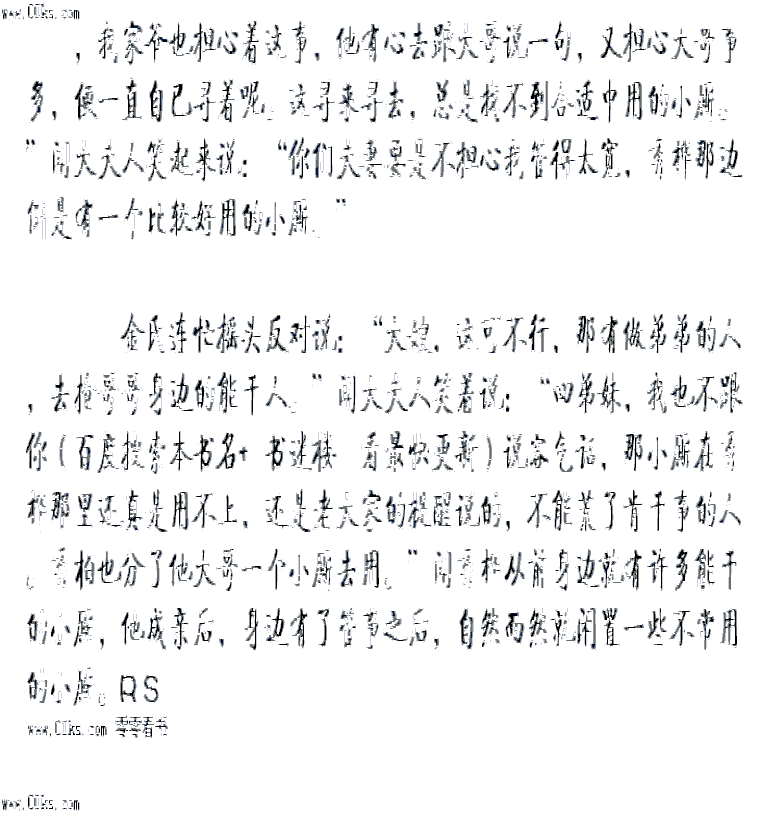 www.00ks.com
，我家爷也担心着这事，他有心去跟大哥说一句，又担心大哥事
多，便一直自已寻着呢。这寻来寻去，总是找不到合适中用的小厮。
”闵大夫人笑起来说：“你们夫妻要是不担心我管得太宽，秀桦那边
倒是有一个比较好用的小厮。”
金氏连忙摇头反对说：“大嫂，这可不行，那有做弟弟的人
，去抢哥哥身边的能干人。”闵大夫人笑着说：“四弟妹，我也不跟
你（百度搜索本书名+ 书迷楼 看最快更新）说客气话，那小厮在秀
桦那里还真是用不上，还是老大家的提醒说的，不能荒了肯干事的人
，秀柏也分了他大哥一个小厮去用。”闵秀桦从前身边就有许多能干
的小厮，他成亲后，身边有了管事之后，自然而然就闲置一些不常用
的小厮。RS
www.00ks.com 零零看书
www.00ks.com